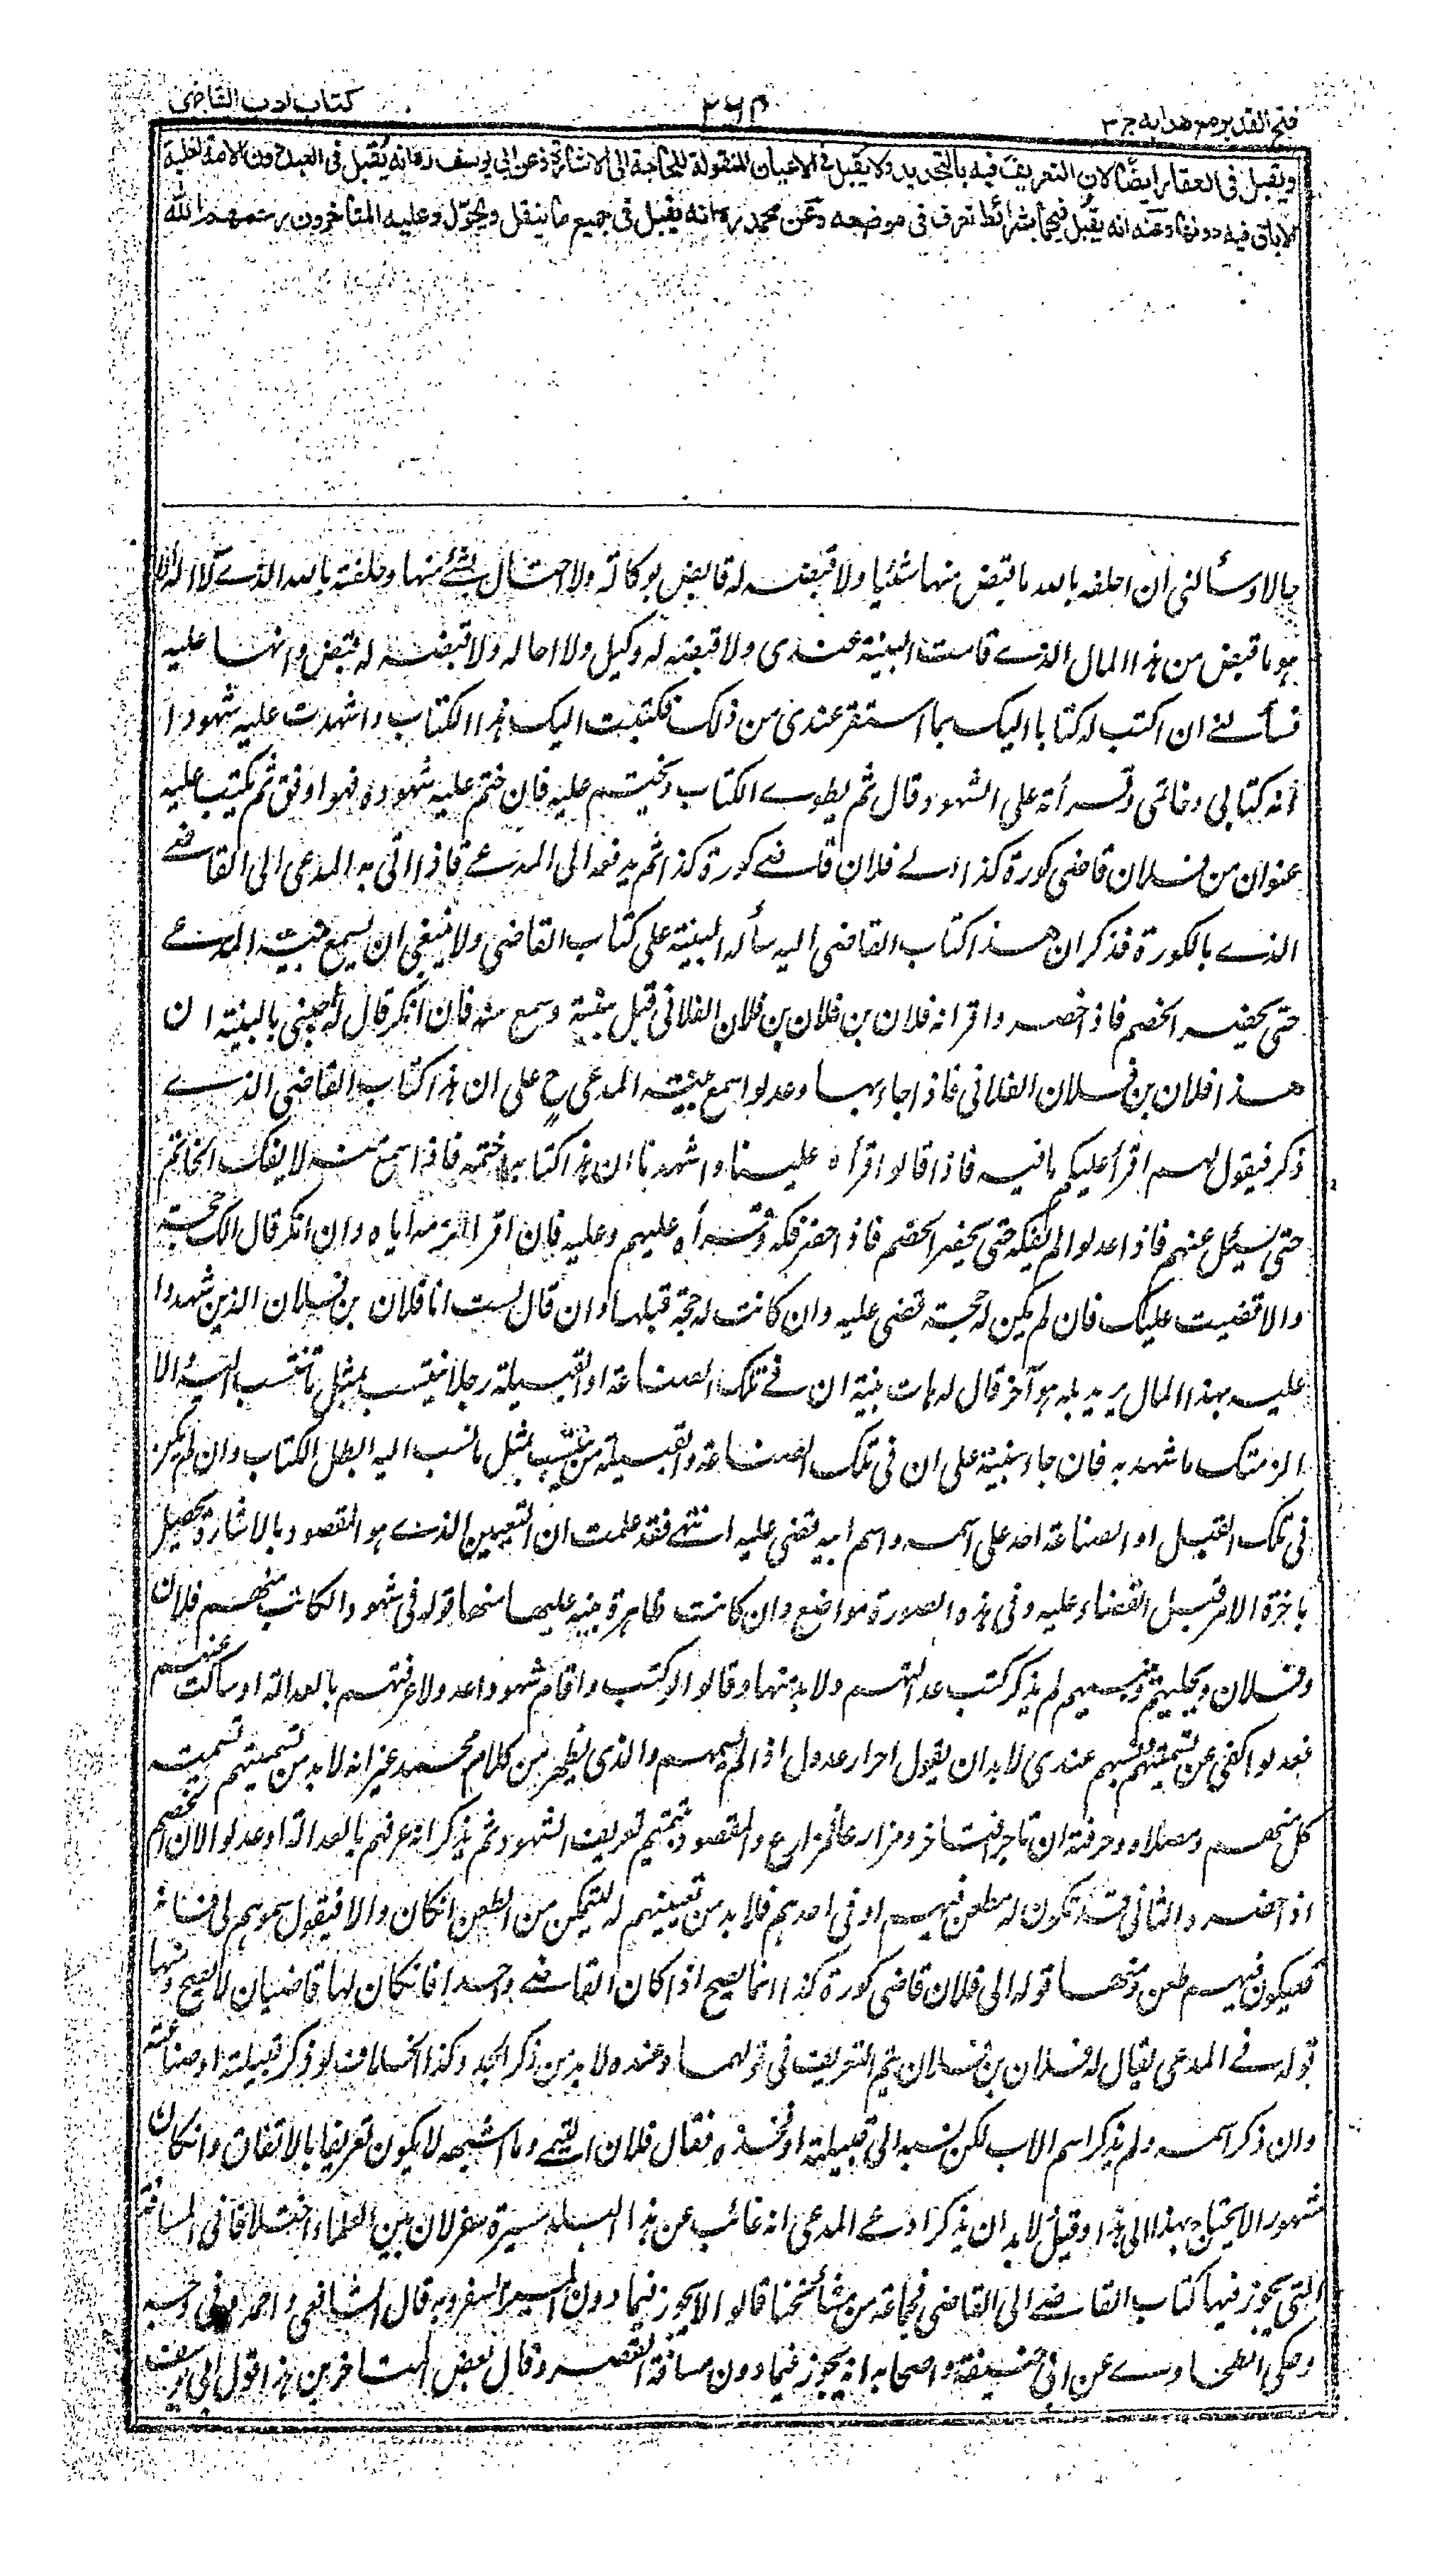 فتح القدير مع هدايه ج ٣
٣٦٢
كتاب ادب القاضى
ويقبل فى العقار ايضا لان التعريف فيه بالتحديد ولا يقبل فى الاعيان المنقولة للحاجة الى الاشارة وعن ابى يوسف رح انه يقبل فى العبد دون الامة لغلبة
الاباق فيه دونها وعنه انه يقبل فيهما بشرائط تعرف فى موضعه وعن محمد رح انه يقبل فى جميع ما ينقل ويحول وعليه المتاخرون رحمهم الله
حالا وسألنى ان احلفه بالله ما قبض منها شيئا ولا قبضه له قابض بوكالة ولا احتال بشئ منها وحلفته بالله الذى لا اله الا
هو ما قبض من هذا المال الذى قامت البينة عندى ولا قبضه له وكيل ولا احاله ولا قبضه له قبض وانها عليه
فسألنى ان اكتب له كتابا اليك بما استقر عندى من ذلك فكتبت اليك هذا الكتاب واشهدت عليه شهودا
انه كتابى وخاتمى وقرأته على الشهود وقال ثم يطوى الكتاب ويختم عليه فان ختم عليه شهوده فهو اوفق ثم يكتب عليه
عنوان من فلان قاضى كورة كذا الى فلان قاضى كورة كذا ثم يدفعه الى المدعى فاذا اتى به المدعى الى القاضى
الذى بالكورة فذكر ان هذا كتاب القاضى اليه سأله البينة على كتاب القاضى ولا ينبغى ان يسمع بينة المدعى
حتى يحضر الخصم فاذا حضر واقر انه فلان بن فلان بن فلان الفلانى قبل بينته وسمع منه فان انكر قال له جئنى بالبينة ان
هذا فلان بن فلان الفلانى فاذا جاء بها وعدلوا سمع بينة المدعى ح على ان هذا كتاب القاضى الذى
ذكر فيقول لهم اقرأ عليكم ما فيه فاذا قالوا قرأه علينا واشهدنا ان هذا كتابه وختمه فاذا سمع منه لا يفك الخاتم
حتى يسئل عنهم فاذا عدلوا لم يفكه حتى يحضر الخصم فاذا حضر فكه وقرأه عليهم وعليه فان اقر الزمه اياه وان انكر قال الك حجة
والا قضيت عليك فان لم يكن له حجة قضى عليه وان كانت له حجة قبلها وان قال لست انا فلان بن فلان الذين شهدوا
عليه بهذا المال يريد بله هو آخر قال له هات بينة ان فى تلك الصناعة او القبيلة رجلا ينتسب بمثل ما تنتسب اليه والا
الزمتك ما شهد به فان جاء ببينة على ان فى تلك الصناعة والقبيلة من ينتسب بمثل ما نسب اليه ابطل الكتاب وان لم يكن
فى تلك القبيلة او الصناعة احد على اسمه واسم ابيه قضى عليه انتهى فقد علمت ان التعيين الذى هو المقصود بالاشارة يحصل
باخرة الامر قبل القضاء عليه وفى هذه الصورة مواضع وان كانت ظاهرة ينبه عليها منها قوله فى شهود الكاتب منهم فلان
وفلان ويحليهم وينسبهم لم يذكر كتب عدالتهم ولا بد منها وقالوا لو كتب واقام شهودا عدولا عرفتهم بالعدالة او سألت عنهم
فعدلوا كفى عن تسميتهم ونسبهم عندى لا بد ان يقول احرار عدول اذا لم يسمهم والذى يظهر من كلام محمد غيره انه لا بد من تسميتهم تسمية
كل منهم ومصلاه وحرفته ان تاجر فتاجر ومزارعا فمزارع والمقصود تتميم تعريف الشهود ثم يذكر انه عرفهم بالعدالة او عدلوا لان الخصم
اذا حضر والثانى قد تكون له مطعن فيهم او فى احدهم فلا بد من تعيينهم له ليتمكن من الطعن ان كان والا فيقول سموهم لى فانه
قد يكون فيهم طعن ومنها قوله الى فلان قاضى كورة كذا انما يصح اذا كان القاضى واحدا فان كان لها قاضيان لا يصح ومنها
قوله فى المدعى يقال له فلان بن فلان يتم التعريف فى قولهما وعنده لا بد من ذكر الجد وكذا الخلاف لو ذكر قبيلته او صناعته
وان ذكر اسمه ولم يذكر اسم الاب لكن نسبه الى قبيلة او فخذه فقال فلان التميمى وما اشبهه لا يكون تعريفا بالاتفاق وان كان
مشهورا لا يحتاج بهذا الى هذا وقيل لا بد ان يذكر ادعى المدعى انه غائب عن هذا البلد مسيرة سفر لان بين العلماء اختلافا فى المسافة
التى يجوز فيها كتاب القاضى الى القاضى فجماعة من مشائخنا قالوا لا يجوز فيما دون المسير السفر وبه قال الشافعى واحمد وفى وجه
وحكى الطحاوى عن ابى حنيفة واصحابه انه يجوز فيما دون مسافة القصر وقال بعض المتاخرين هذا قول ابى يوسف